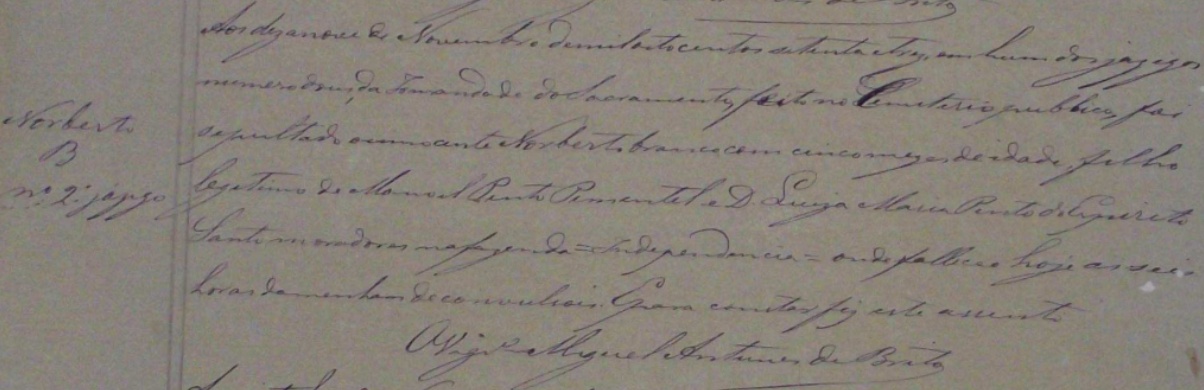 de Brito
Aos dezanove de Novembro de mil oito centos setenta e tres, em hum dos jazigos
Norberto
B
nº 2º jazigo
numero dous, da Irmandade do Sacramento, feito no Cemiterio publico, foi
sepultado o innocente Norberto branco com cinco mezes de idade, filho
legitimo de Manoel Pinto Pimentel e D. Luiza Maria Pinto do Espirito
Santo moradores na fazenda = Independencia = onde falleceo hoje as seis
horas da menham de convulsois. E para constar fiz este assento
O Vigrº Miguel Antunes de Brito